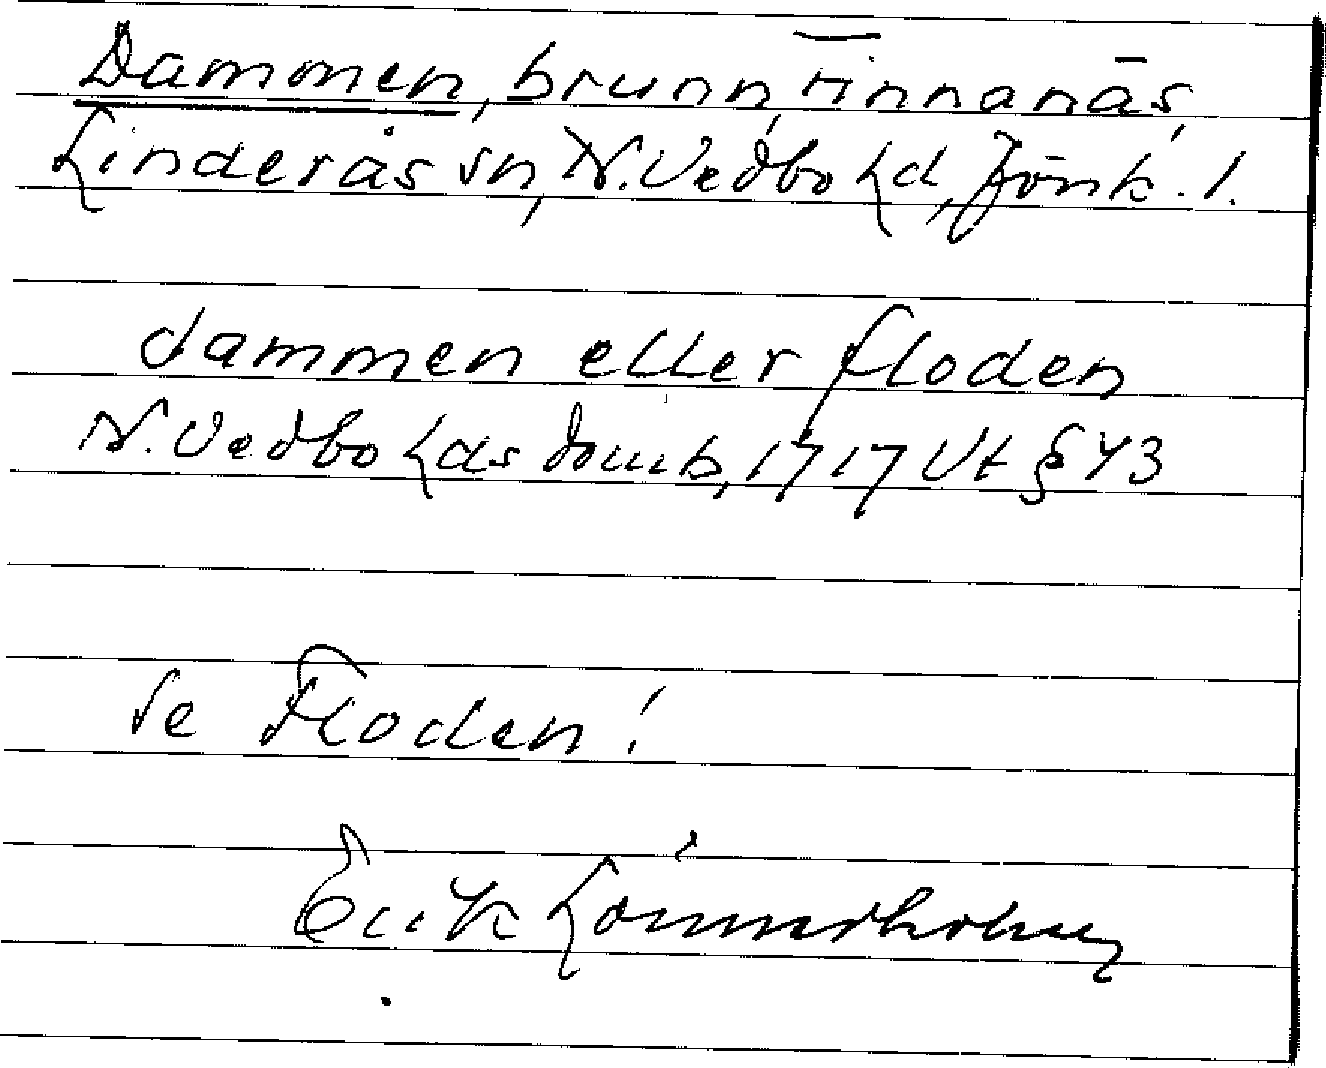 Dammen, brunn, Finnanäs,
Linderås sn, N. Vedbo hd, Jönk. l.
dammen eller floden
N. Vedbo hds domb, 1717 Vt § 43
Se Floden!
Erik Lönnerholm